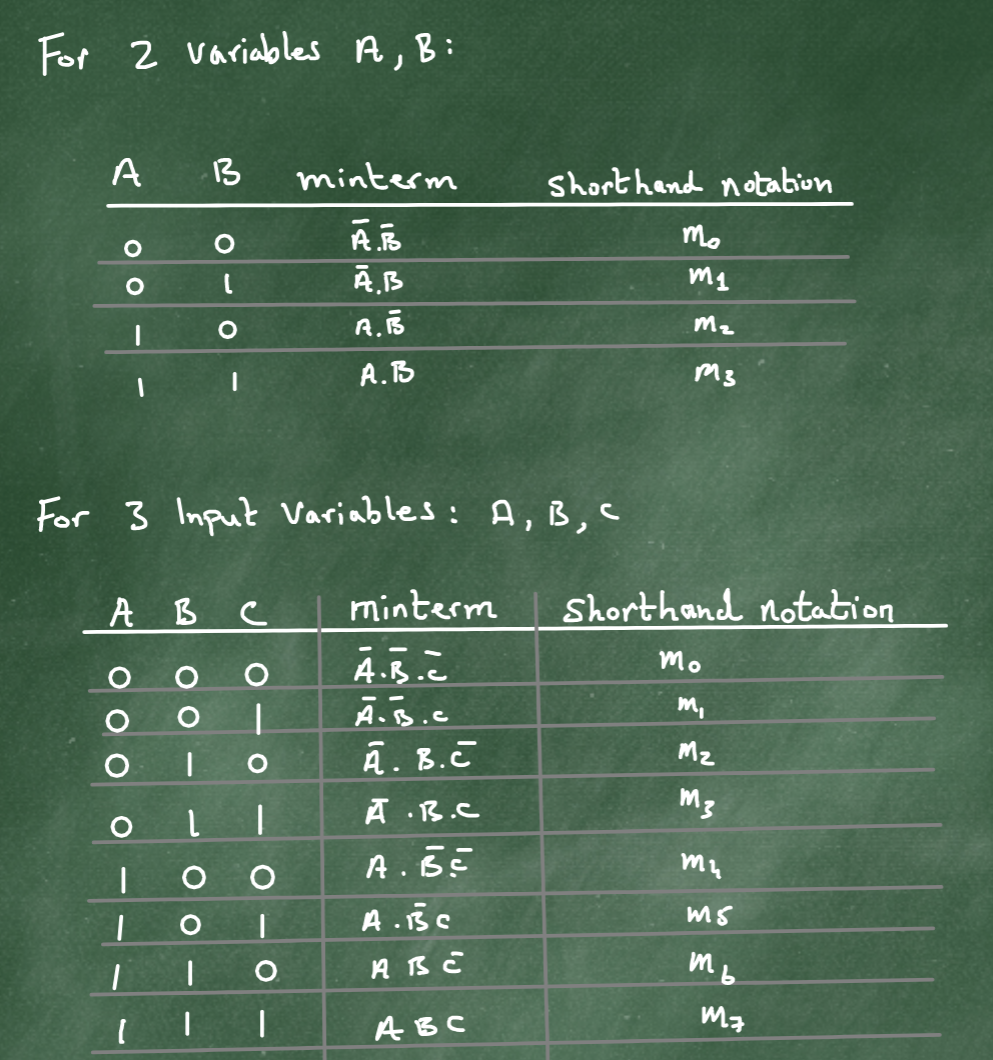 For 2 variables A, B:
A B minterm shorthand notation
0 0 A̅.B̅ m₀
0 1 A̅.B m₁
1 0 A.B̅ m₂
1 1 A.B m₃
For 3 Input Variables: A, B, C
A B C minterm shorthand notation
0 0 0 A̅.B̅.C̅ m₀
0 0 1 A̅.B̅.C m₁
0 1 0 A̅.B.C̅ m₂
0 1 1 A̅.B.C m₃
1 0 0 A.B̅C̅ m₄
1 0 1 A.B̅C m5
1 1 0 A B C̅ m₆
1 1 1 A B C m₇